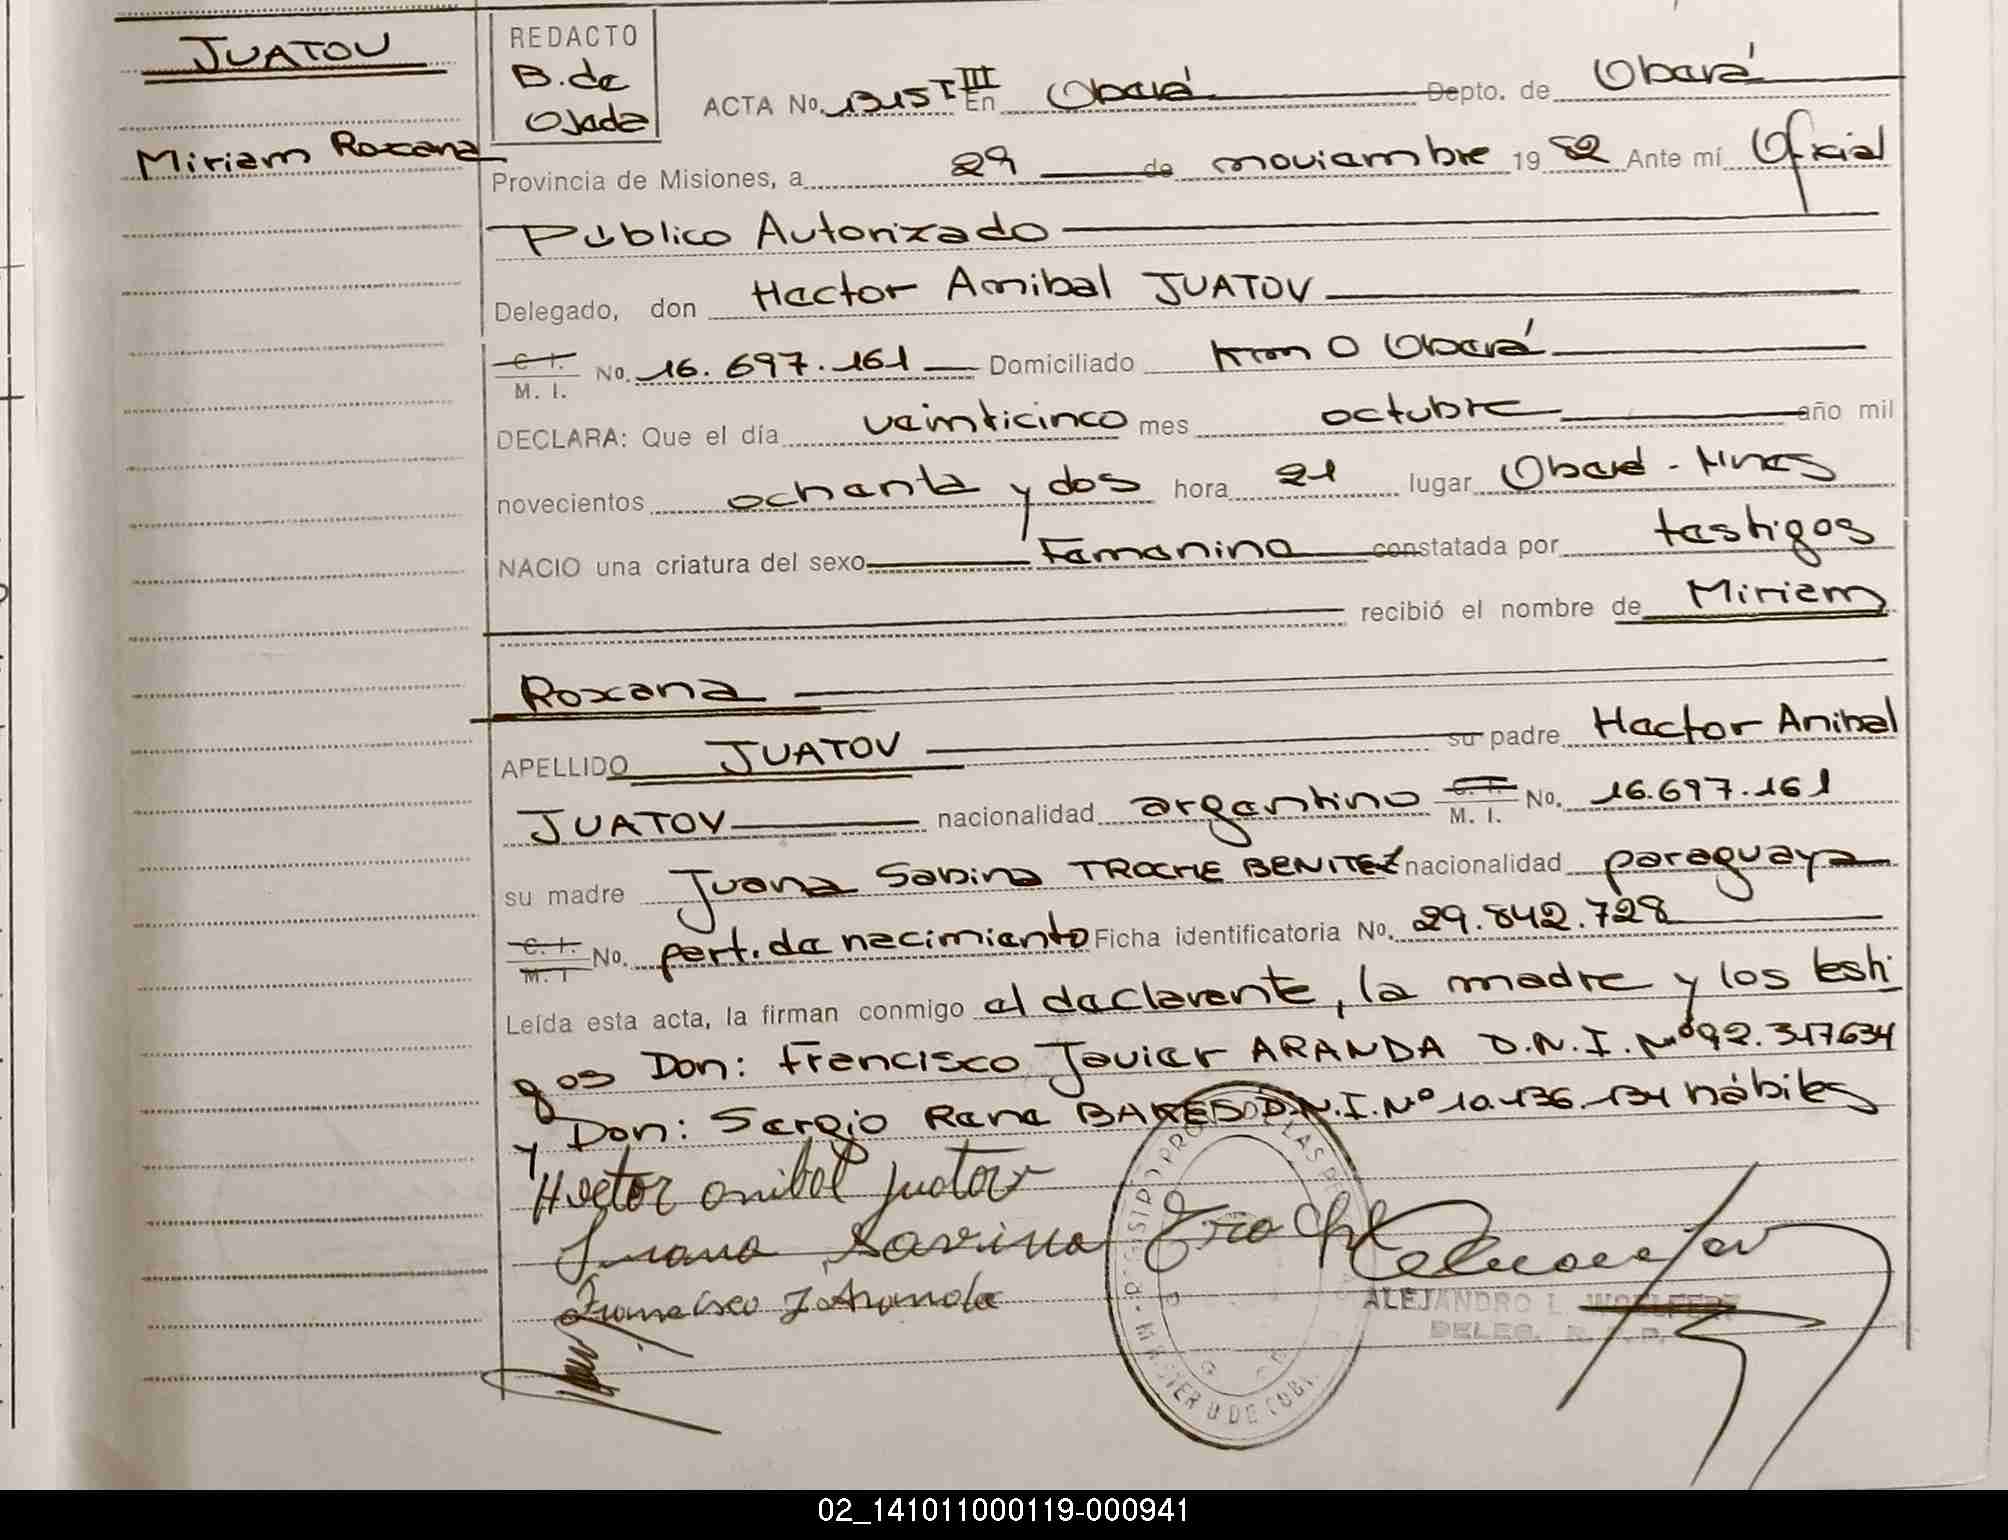 JUATOV
Miriam Roxana
REDACTO
B. de
Ojeda
ACTA No. 1315 T III En Oberá Depto. de Oberá
Provincia de Misiones, a 29 de noviembre 19 82 Ante mí Oficial
Público Autorizado
Delegado, don Hector Anibal JUATOV
C. I. M. I. No. 16.697.161 Domiciliado Km 0 Oberá
DECLARA: Que el día veinticinco mes octubre año mil
novecientos ochenta y dos hora 21 lugar Oberá - Mnes
NACIO una criatura del sexo Femenino constatada por testigos
recibió el nombre de Miriam
Roxana
APELLIDO JUATOV su padre Hector Anibal
JUATOV nacionalidad argentino C. I. M. I. No. 16.697.161
su madre Juana Sabina TROCHE BENITEZ nacionalidad paraguaya
C. I. M. I No. pert. de nacimiento Ficha identificatoria No. 29.842.728
Leída esta acta, la firman conmigo el declarente, la madre y los testi
gos Don: Francisco Javier ARANDA D.N.I. Nº 92.347634
y Don: Sergio Rene D.N.I. Nº 10.136.134 hábiles
Hector anibal juatov
Juana Savina Troche
Francisco J Aranda
ALEJANDRO L.
DELEG.
02_141011000119-000941